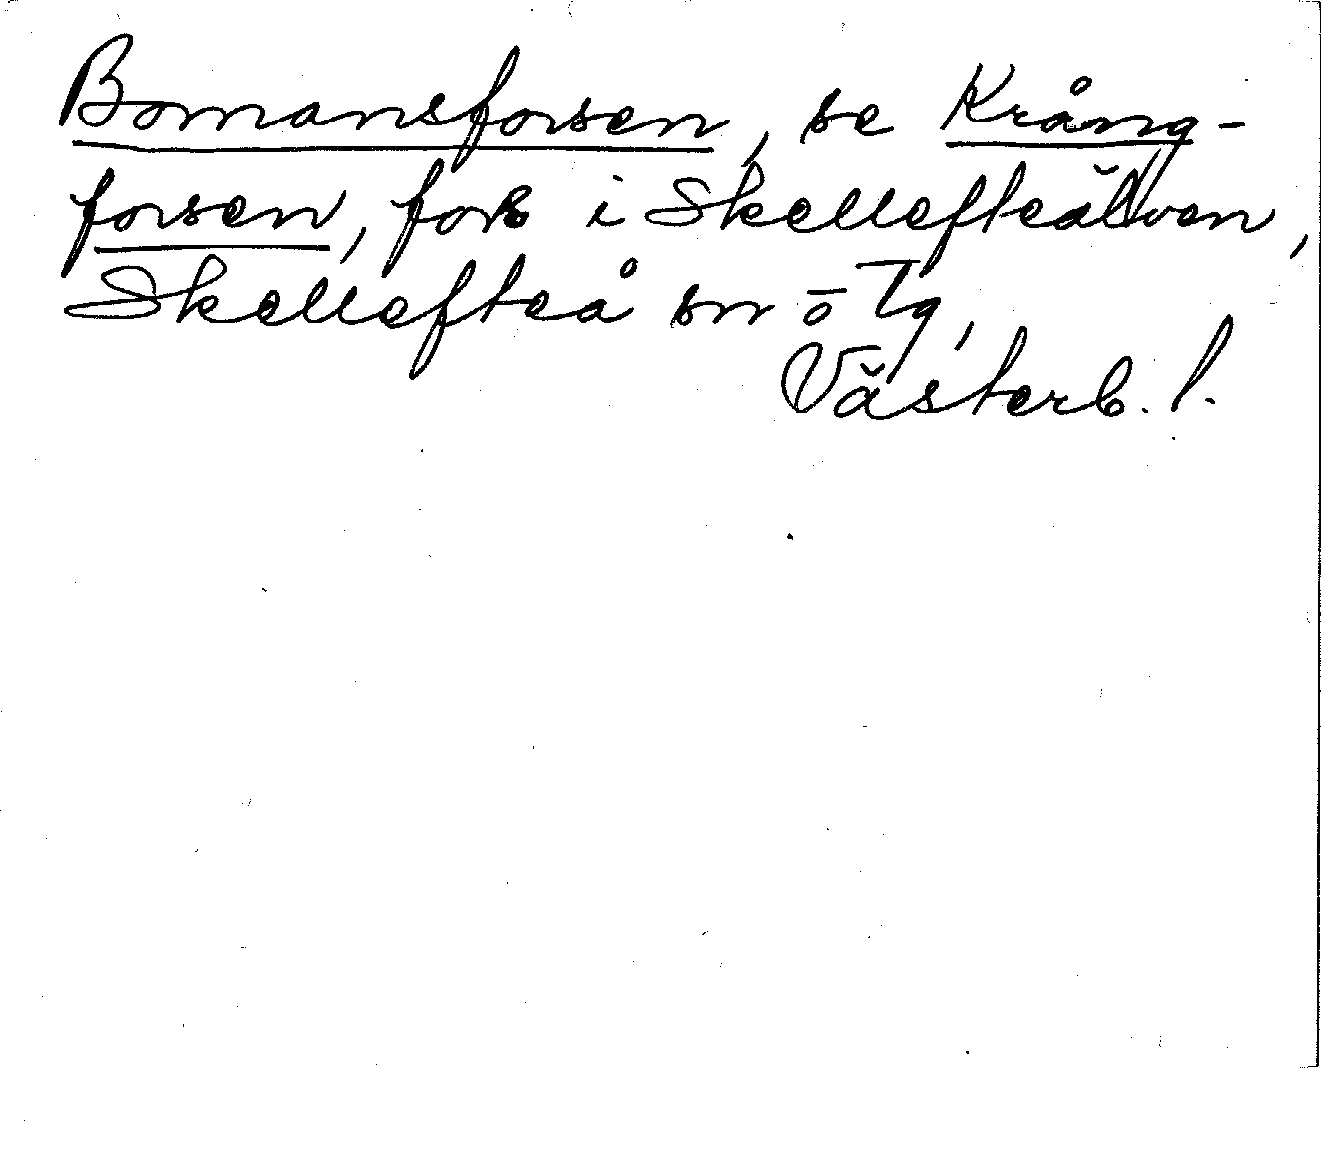 Bomansforsen, se Krång-
forsen, fors i Skellefteälven,
Skellefteå sn o Tg,
Västerb. l.